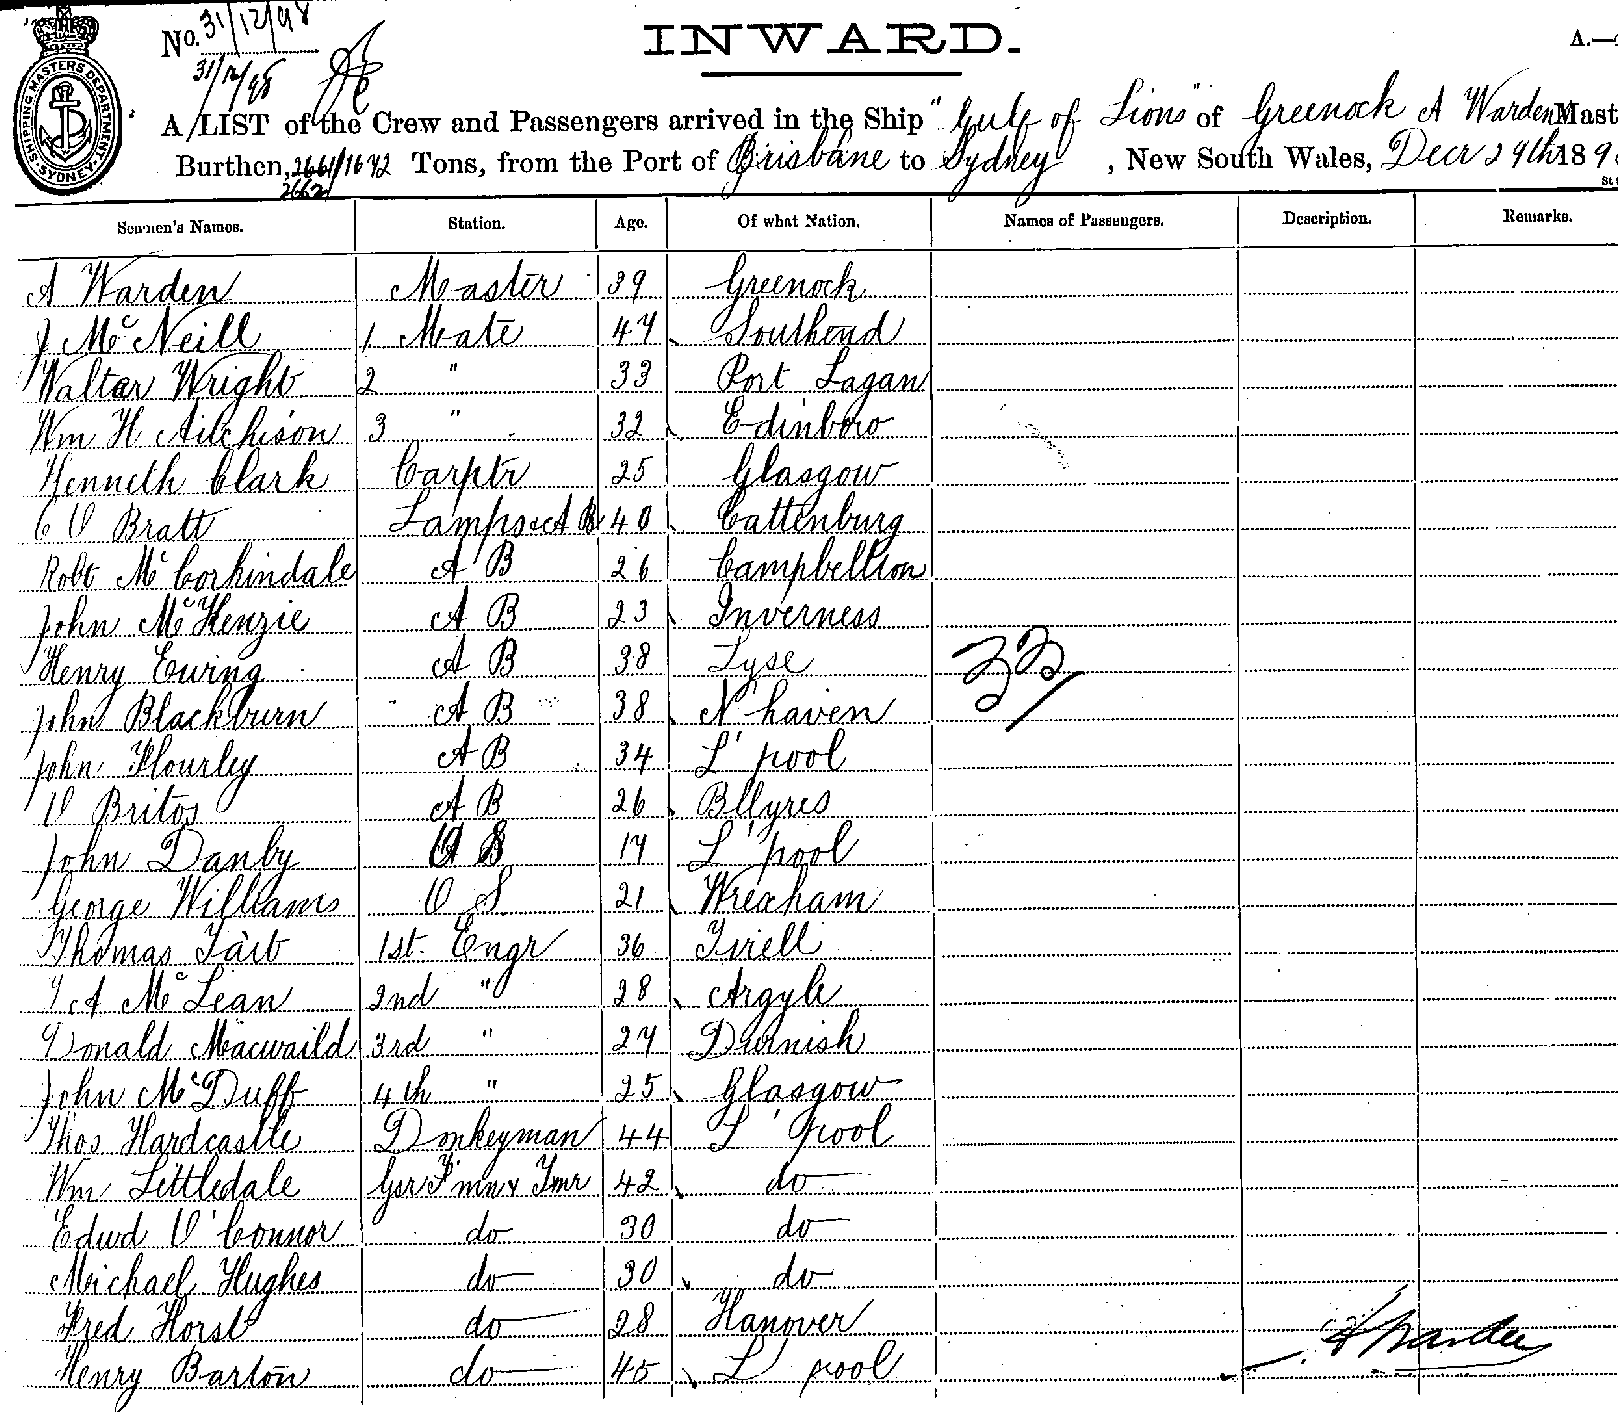 No. 31/12/98
INWARD.
A.—
31/12/98
SHIPPING MASTERS DEPARTMENT. SYDNEY
A LIST of the Crew and Passengers arrived in the Ship "Gulf of Lions" of Greenock A Warden Mast
Burthen, 2661/1672 Tons, from the Port of Brisbane to Sydney, New South Wales, Decr 29th 189
2662
Seamen's Names. Station. Age. Of what Nation. Names of Passengers. Description. Remarks.
A Warden Master 39 Greenock
J McNeill 1 Mate 47 Southend
Waltar Wright 2 " 33 Port Lagan
Wm H Aitchison 3 " 32 Edinboro
Kenneth Clark Carptr 25 Glasgow
C O Bratt Lamps & A B 40 Cattenburg
Robt McCorkindale A B 26 Campbellton
John McKenzie A B 23 Inverness
Henry Ewing A B 38 Lyse
John Blackburn A B 38 N'haven
John Flourley A B 34 L'pool
O Britos A B 26 BAyres
John Danby O S 17 L'pool
George Williams O S 21 Wrexham
Thomas Tait 1st. Engr 36 Tirell
J A McLean 2nd " 28 Argyle
Donald Macwaild 3rd " 27 Durnish
John McDuff 4th " 25 Glasgow
Thos Hardcastle Donkeyman 44 L'pool
Wm Littledale Gsr F'mn & Tmr 42 do
Edwd O'Connor do 30 do
Michael Hughes do 30 do
Fred Horst do 28 Hanover
Henry Barton do 45 L'pool
33/
A Warden